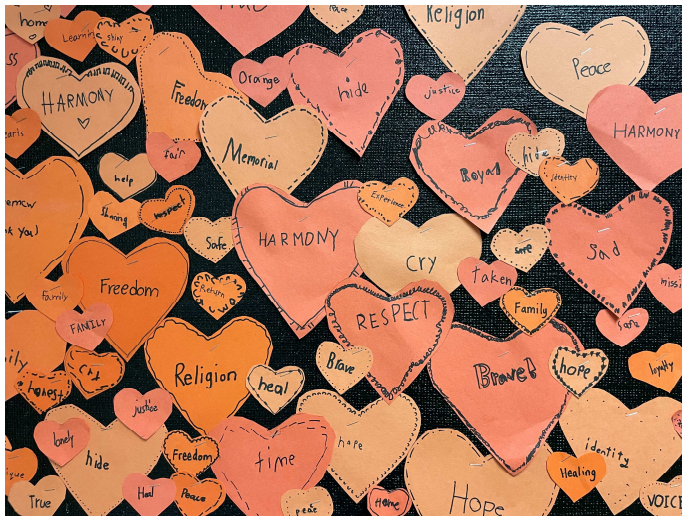 home
Learning
shiny
Peace
Religion
Peace
HARMONY
Freedom
Orange
hide
justice
HARMONY
fair
Memorial
Royal
hide
identity
help
Sharing
respect
Safe
HARMONY
Experience
cry
safe
Sad
k you!
Freedom
Return
taken
Family
Family
FAMILY
RESPECT
Safe
Cry
honest
Religion
heal
Brave
Brave!
hope
loyalty
justice
lonely
hide
Freedom
time
hope
identity
Healing
True
Heal
Peace
peace
Home
Hope
VOICE